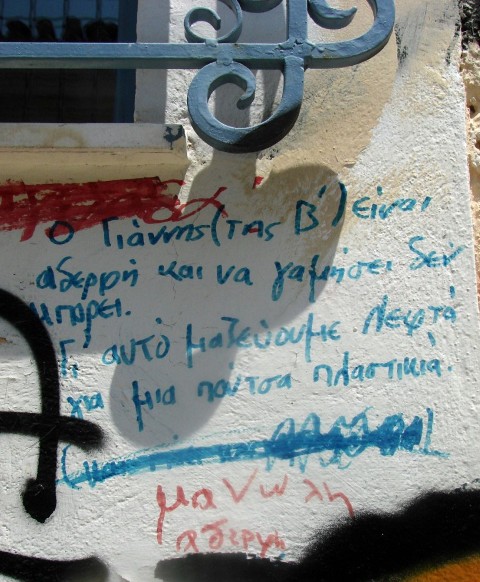 Ο Γιάννης (της Β') είναι
αδερφή και να γαμήσει δεν
μπορεί.
Γι' αυτό μαζεύουμε λεφτά
για μια πούτσα πλαστικιά.
μανώλη
αδερφή